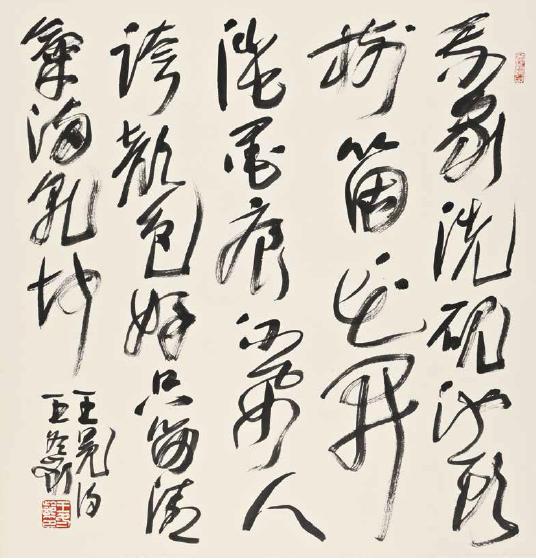 吾家洗硯池頭
樹箇花開
淡墨痕不要人
誇顏色好只留清
氣滿乾坤
王冕
王冬齡